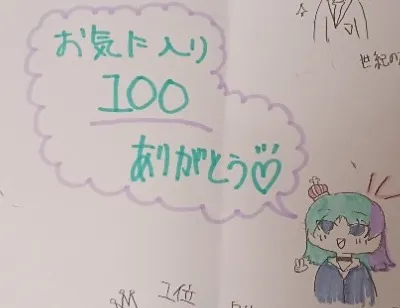 お気に入り
100
ありがとう♡
世紀の
1位